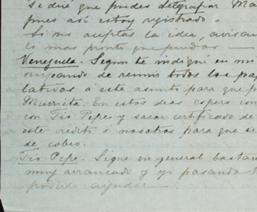 Se dice que puedes telegrafiar. Ma
pues así estoy registrado.
Si no aceptas la idea, avísam
lo mas pronto que puedas
Venezuela. Segun te indiqué en mi
ocupando de reunir todos los pap
lativos a este asunto para que p
Murrieta. En estos dias espero con
con Tio Pepe y sacar certificado de
este credito a nosotros para que se
de cobro.
Tio Pepe. Sigue en general bastan
muy arrancado y yo pasando t
poderle ayudar.